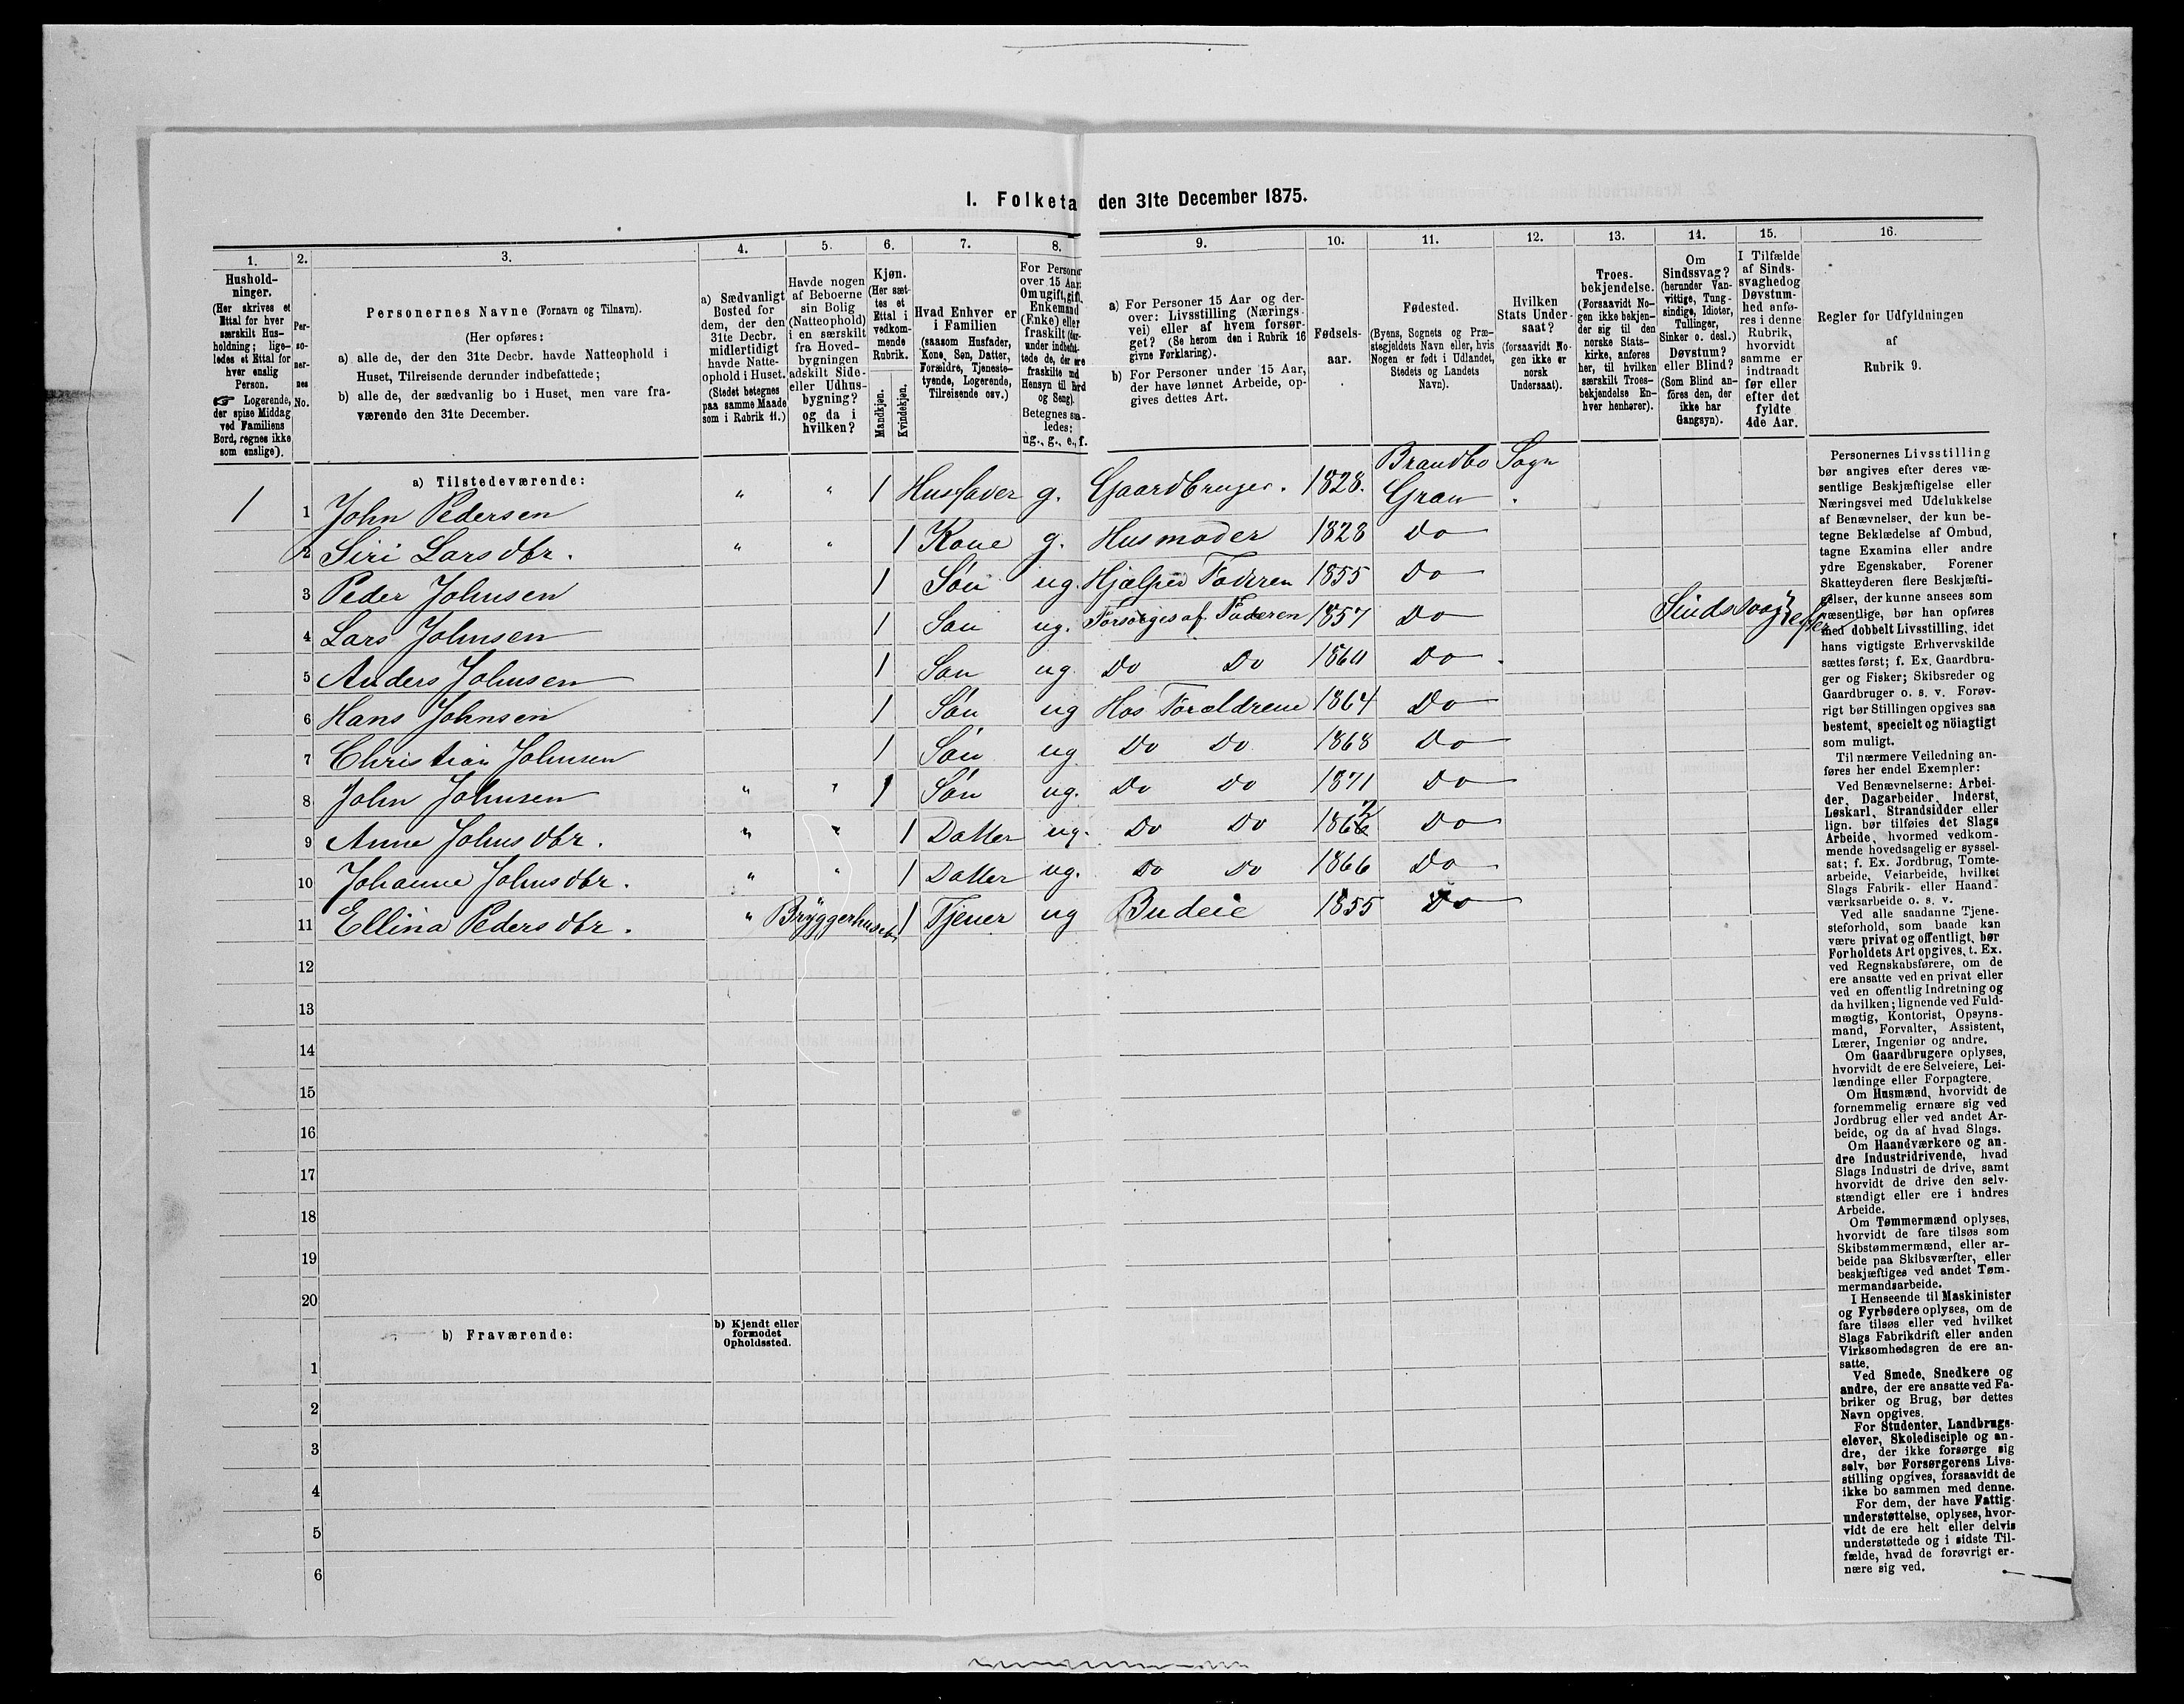 I. Folketa den 31te December 1875.
1. 2. 3. 4. 5. 6. 7. 8. 9. 10. 11. 12. 13. 14. 15. 16.
Hushold-
ninger.
(Her skrives et
Ettal for hver
særskilt Hus-
holdning; lige-
ledes et Ettal for
hver enslig
Person.
☞ Logerende,
der spise Middag
ved Familiens
Bord, regnes ikke
som enslige).
Per-
so-
ner-
nes
No.
Personernes Navne (Fornavn og Tilnavn).
(Her opføres:
a) alle de, der den 31te Decbr. havde Natteophold i
Huset, Tilreisende derunder indbefattede;
b) alle de, der sædvanlig bo i Huset, men vare fra-
værende den 31te December.
a) Sædvanligt
Bosted for
dem, der den
31te Decbr.
midlertidigt
havde Natte-
ophold i Huset.
(Stedet betegnes
paa samme Maade
som i Rubrik 11.)
Havde nogen
af Beboerne
sin Bolig
(Natteophold)
i en særskilt
fra Hoved-
bygningen
adskilt Side-
eller Udhus-
bygning?
og da i
hvilken?
Kjøn.
(Her sæt-
tes et
Ettal i
vedkom-
mende
Rubrik.
Mandkjøn.
Kvindekjøn.
Hvad Enhver er
i Familien
(saasom Husfader,
Kone, Søn, Datter,
Forældre, Tjeneste-
tyende, Logerende,
Tilreisende osv.)
For Personer
over 15 Aar:
Om ugift, gift,
Enkemand
(Enke) eller
fraskilt (der-
under indbefat-
tede de, der ere
fraskilte md
Hensyn til Bord
og Seng).
Betegnes sa-
ledes:
ug., g., e., f.
a) For Personer 15 Aar og der-
over: Livsstilling (Nærings-
vei) eller af hvem forsør-
get? (Se herom den i Rubrik 16
givne Forklaring).
b) For Personer under 15 Aar,
der have lønnet Arbeide, op-
gives dettes Art.
Fødsels-
aar.
Fødested.
(Byens, Sognets og Præ-
stegjeldets Navn eller, hvis
Nogen er født i Udlandet,
Stedets og Landets
Navn).
Hvilken
Stats Under-
saat?
(forsaavidt No-
gen ikke er
norsk
Undersaat).
Troes-
bekjendelse.
(Forsaavidt No-
gen ikke bekjen-
der sig til den
norske Stats-
kirke, anføres
her, til hvilken
særskilt Troes-
bekjendelse En-
hver henhører).
Om
Sindssvag?
(herunder Van-
vittige, Tung-
sindige, Idioter,
Tullinger,
Sinker o. desl.)
Døvstum?
eller Blind?
(Som Blind an-
føres den, der
ikke har
Gangsyn).
I Tilfælde
af Sinds-
svaghed og
Døvstum-
hed anfø-
res i denne
Rubrik,
hvorvidt
samme er
indtraadt
før eller
efter det
fyldte
4de Aar.
Regler for Udfyldningen
af
Rubrik 9.
a) Tilstedeværende:
Brandbo Sogn
1 1 John Pedersen " " 1 Husfader g. Gaardbruger. 1828. Gran
2 Siri Larsdtr. " " 1 Kone g. Husmoder 1828 Do
3 Peder Johnsen 1 Søn ug. Hjælper Faderen 1855 Do
4 Lars Johnsen 1 Søn ug. Forsørges af Faderen 1857 Do Sindssvag efter
5 Anders Johnsen 1 Søn ug. Do Do 1860 Do
6 Hans Johnsen 1 Søn ug Hos Forældrene 1864 Do
7 Christian Johnsen 1 Søn ug Do Do 1868 Do
8 John Johnsen " " 1 Søn ug. Do Do 1871 Do
9 Anne Johnsdtr. " " 1 Datter ug. Do Do 1862 Do
10 Johanne Johnsdtr. " " 1 Datter ug. Do Do 1866 Do
11 Ellina Pedersdtr. " Bryggerhuset 1 Tjener ug Budeie 1855 Do
12
13
14
15
16
17
18
19
20
b) Fraværende:
b) Kjendt eller
formodet
Opholdssted.
1
2
3
4
5
6
Personernes Livsstilling
bør angives efter deres væ-
sentlige Beskjæftigelse eller
Næringsvei med Udelukkelse
af Benævnelser, der kun be-
tegne Beklædelse af Ombud,
tagne Examina eller andre
ydre Egenskaber. Forener
Skatteyderen flere Beskjæfti-
gelser, der kunne ansees som
væsentlige, bør han opføres
med dobbelt Livsstilling, idet
hans vigtigste Erhvervskilde
sættes først; f. Ex. Gaardbru-
ger og Fisker; Skibsreder og
Gaardbruger o. s. v. Forøv-
rigt bør Stillingen opgives saa
bestemt, specielt og nöiagtigt
som muligt.
Til nærmere Veiledning an-
føres her endel Exempler:
Ved Benævnelserne: Arbei-
der, Dagarbeider, Inderst,
Løskarl, Strandsidder eller
lign. bør tilføies det Slags
Arbeide, hvormed vedkom-
mende hovedsagelig er syssel-
sat; f. Ex. Jordbrug, Tomte-
arbeide, Veiarbeide, hvilket
Slags Fabrik- eller Haand-
værksarbeide o. s. v.
Ved alle saadanne Tjene-
steforhold, som baade kan
være privat og offentligt, bør
Forholdets Art opgives, t. Ex.
ved Regnskabsførere, om de
ere ansatte ved en privat eller
ved en offentlig Indretning og
da hvilken; lignende ved Fuld-
mægtig, Kontorist, Opsyns-
mand, Forvalter, Assistent,
Lærer, Ingeniør og andre.
Om Gaardbrugere oplyses,
hvorvidt de ere Selveiere, Lei-
lændinge eller Forpagtere.
Om Husmænd, hvorvidt de
fornemmelig ernære sig ved
Jordbrug eller ved andet Ar-
beide, og da af hvad Slags.
Om Haandværkere og an-
dre Industridrivende, hvad
Slags Industri de drive, samt
hvorvidt de drive den selv-
stændigt eller ere i andres
Arbeide.
Om Tømmermænd oplyses,
hvorvidt de fare tilsøs som
Skibstømmermænd, eller ar-
beide paa Skibsværfter, eller
beskjæftiges ved andet Tøm-
mermandsarbeide.
I Henseende til Maskinister
og Fyrbødere oplyses, om de
fare tilsøs eller ved hvilket
Slags Fabrikdrift eller anden
Virksomhedsgren de ere an-
satte.
Ved Smede, Snedkere og
andre, der ere ansatte ved Fa-
briker og Brug, bør dettes
Navn opgives.
For Studenter, Landbrugs-
elever, Skoledisciple og an-
dre, der ikke forsørge sig
selv, bør Forsørgerens Livs-
stilling opgives, forsaavidt de
ikke bo sammen med denne.
For dem, der have Fattig-
understøttelse, oplyses, hvor-
vidt de ere helt eller delvis
understøttede og i sidste Til-
fælde, hvad de forøvrigt er-
nære sig ved.